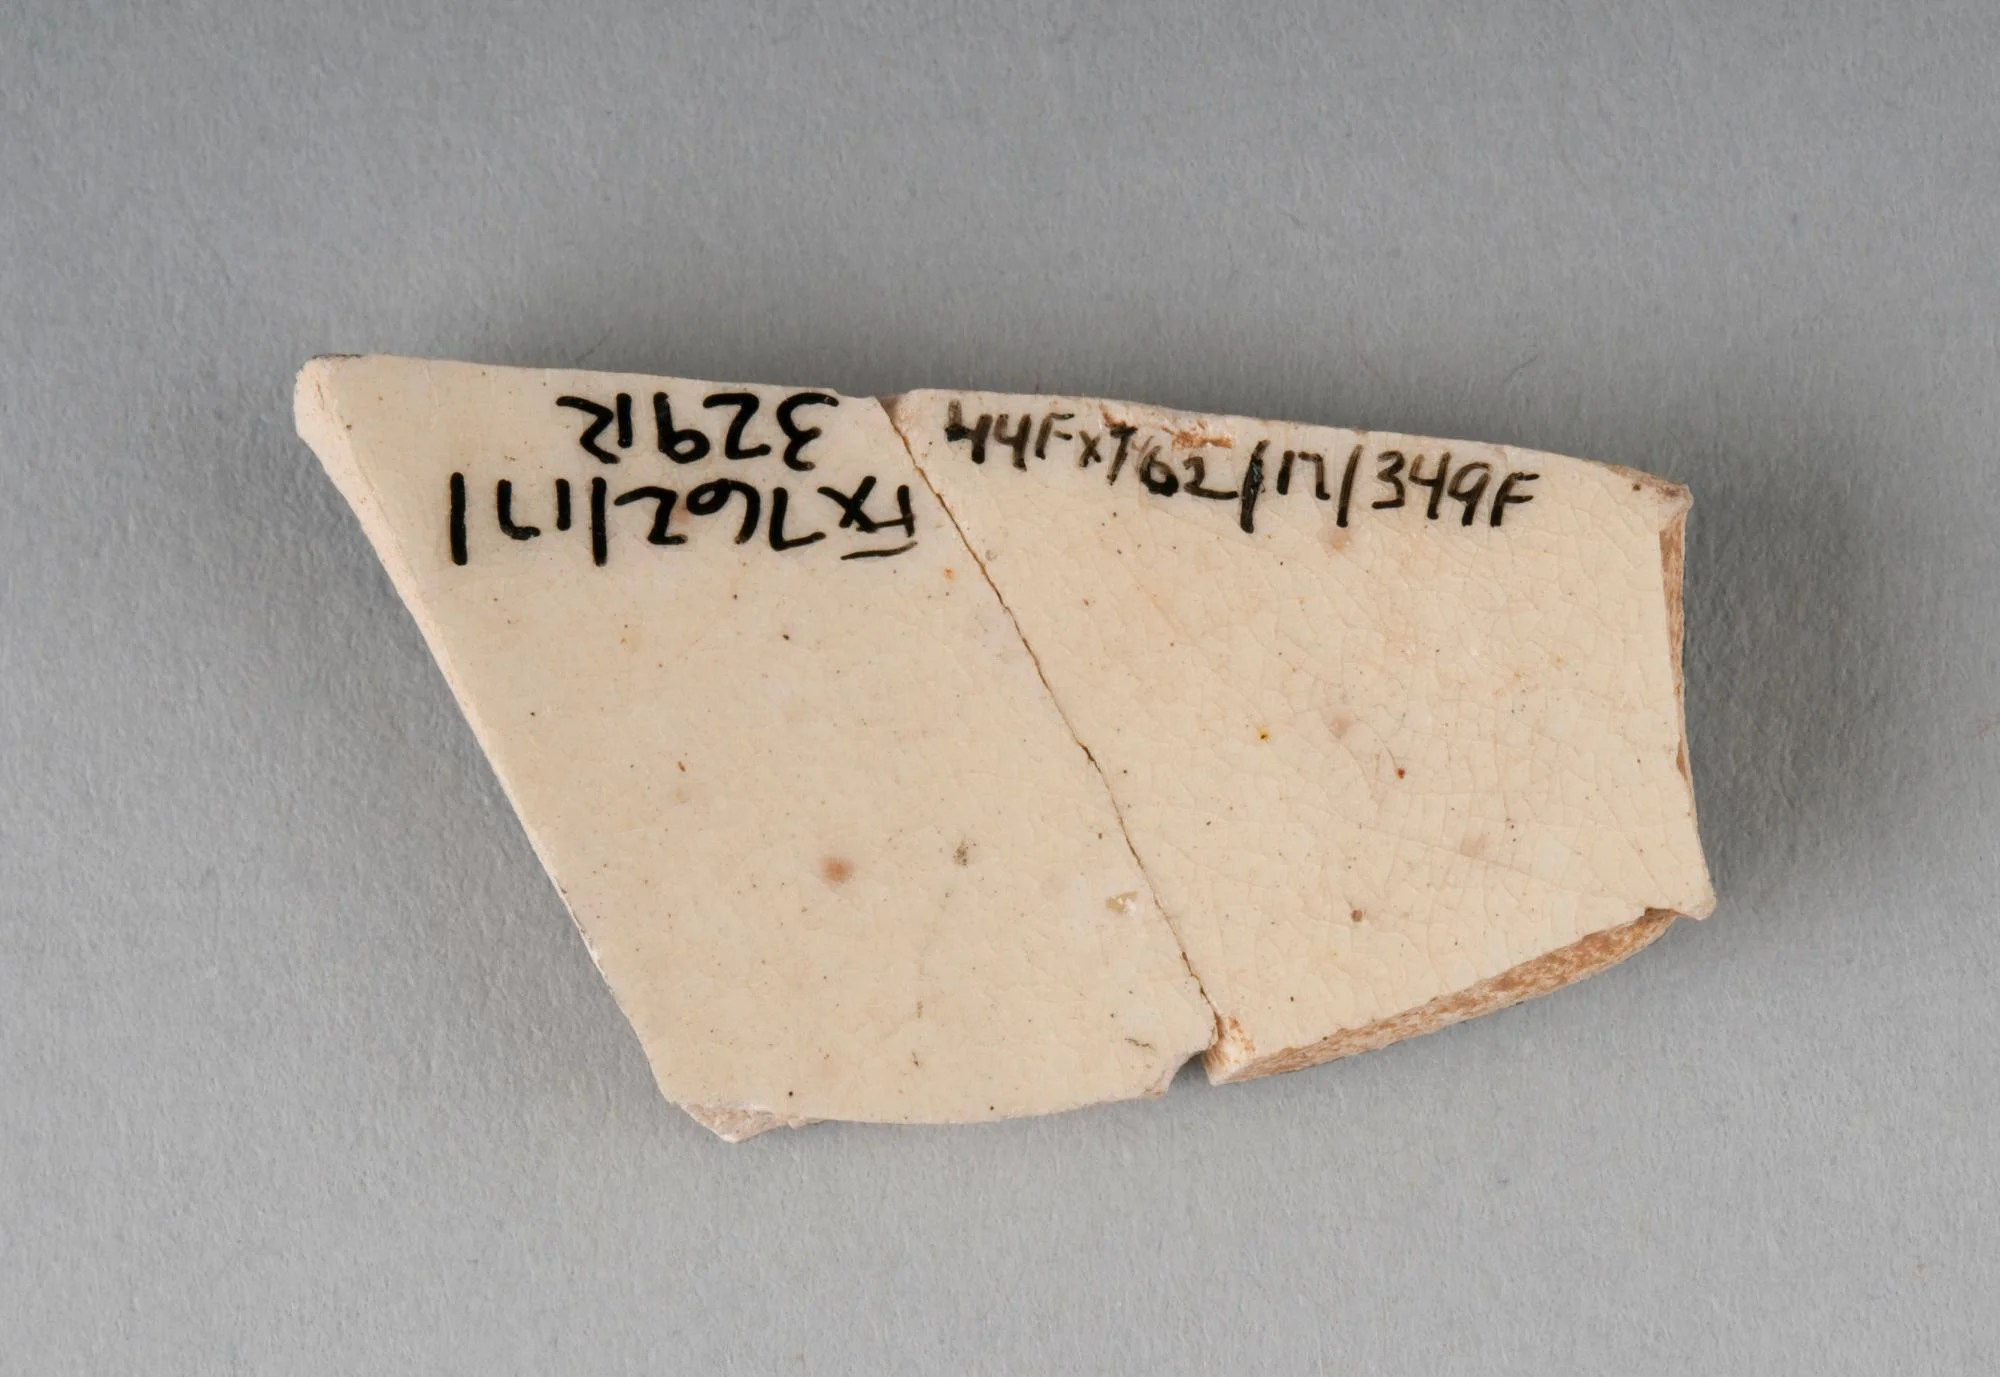 Fx762/17/
329R
44Fx762/17/349F